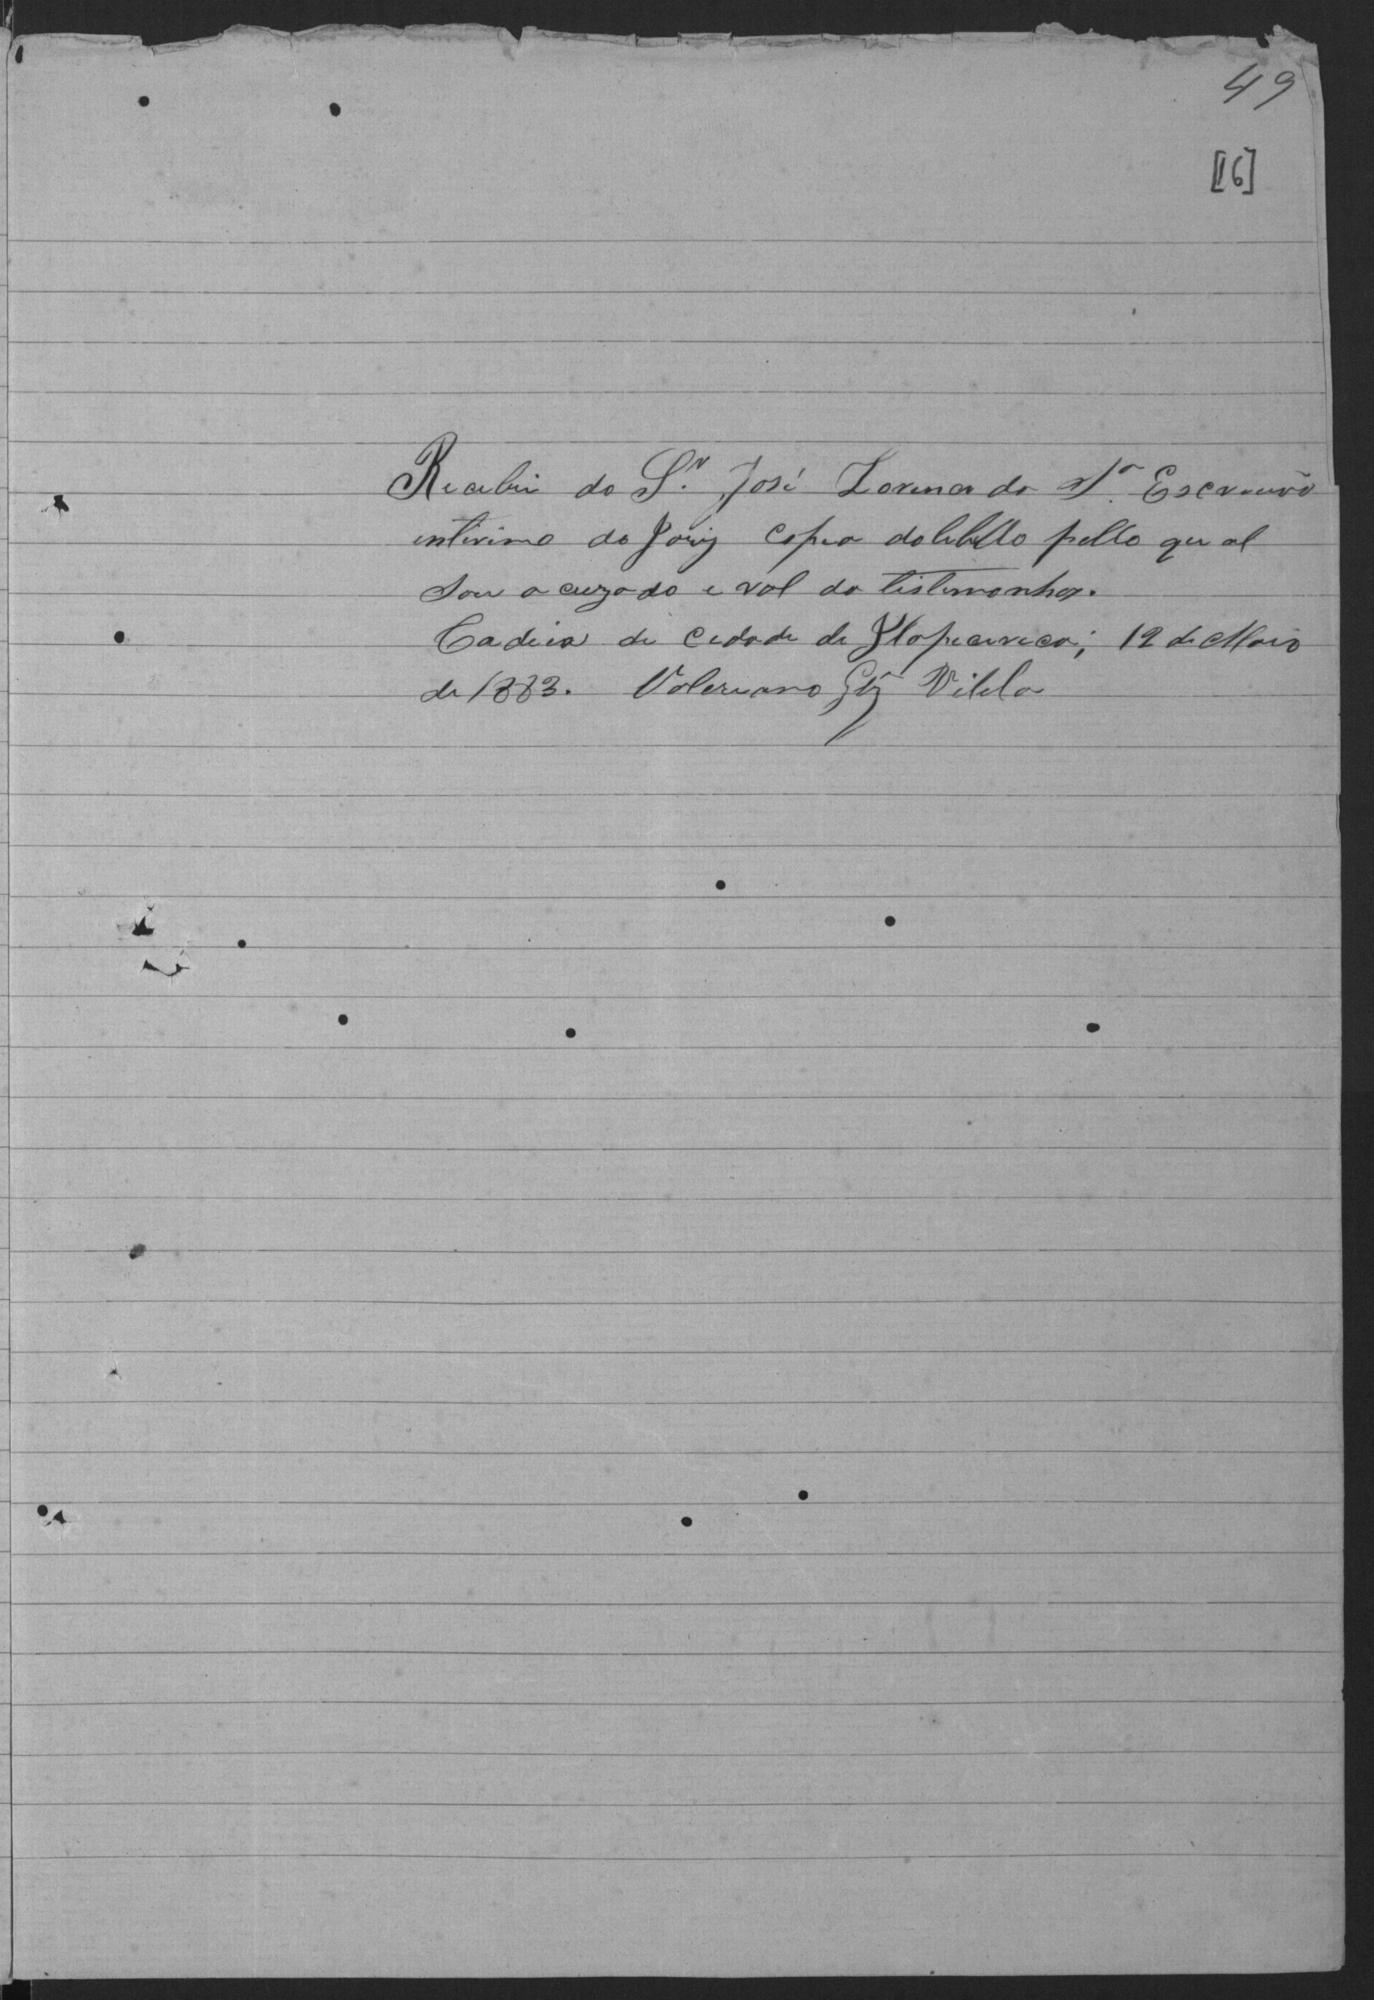 49
[16]
Recebi do Sr. José Lorena do Escrivão
intirino do Jury copia do libello pello qu al
sou a cuzado e rol da testimonhas.
Cadeia da cidade de Itapicirica; 12 de Maio
de 1883. Valeriano Glz Vilela